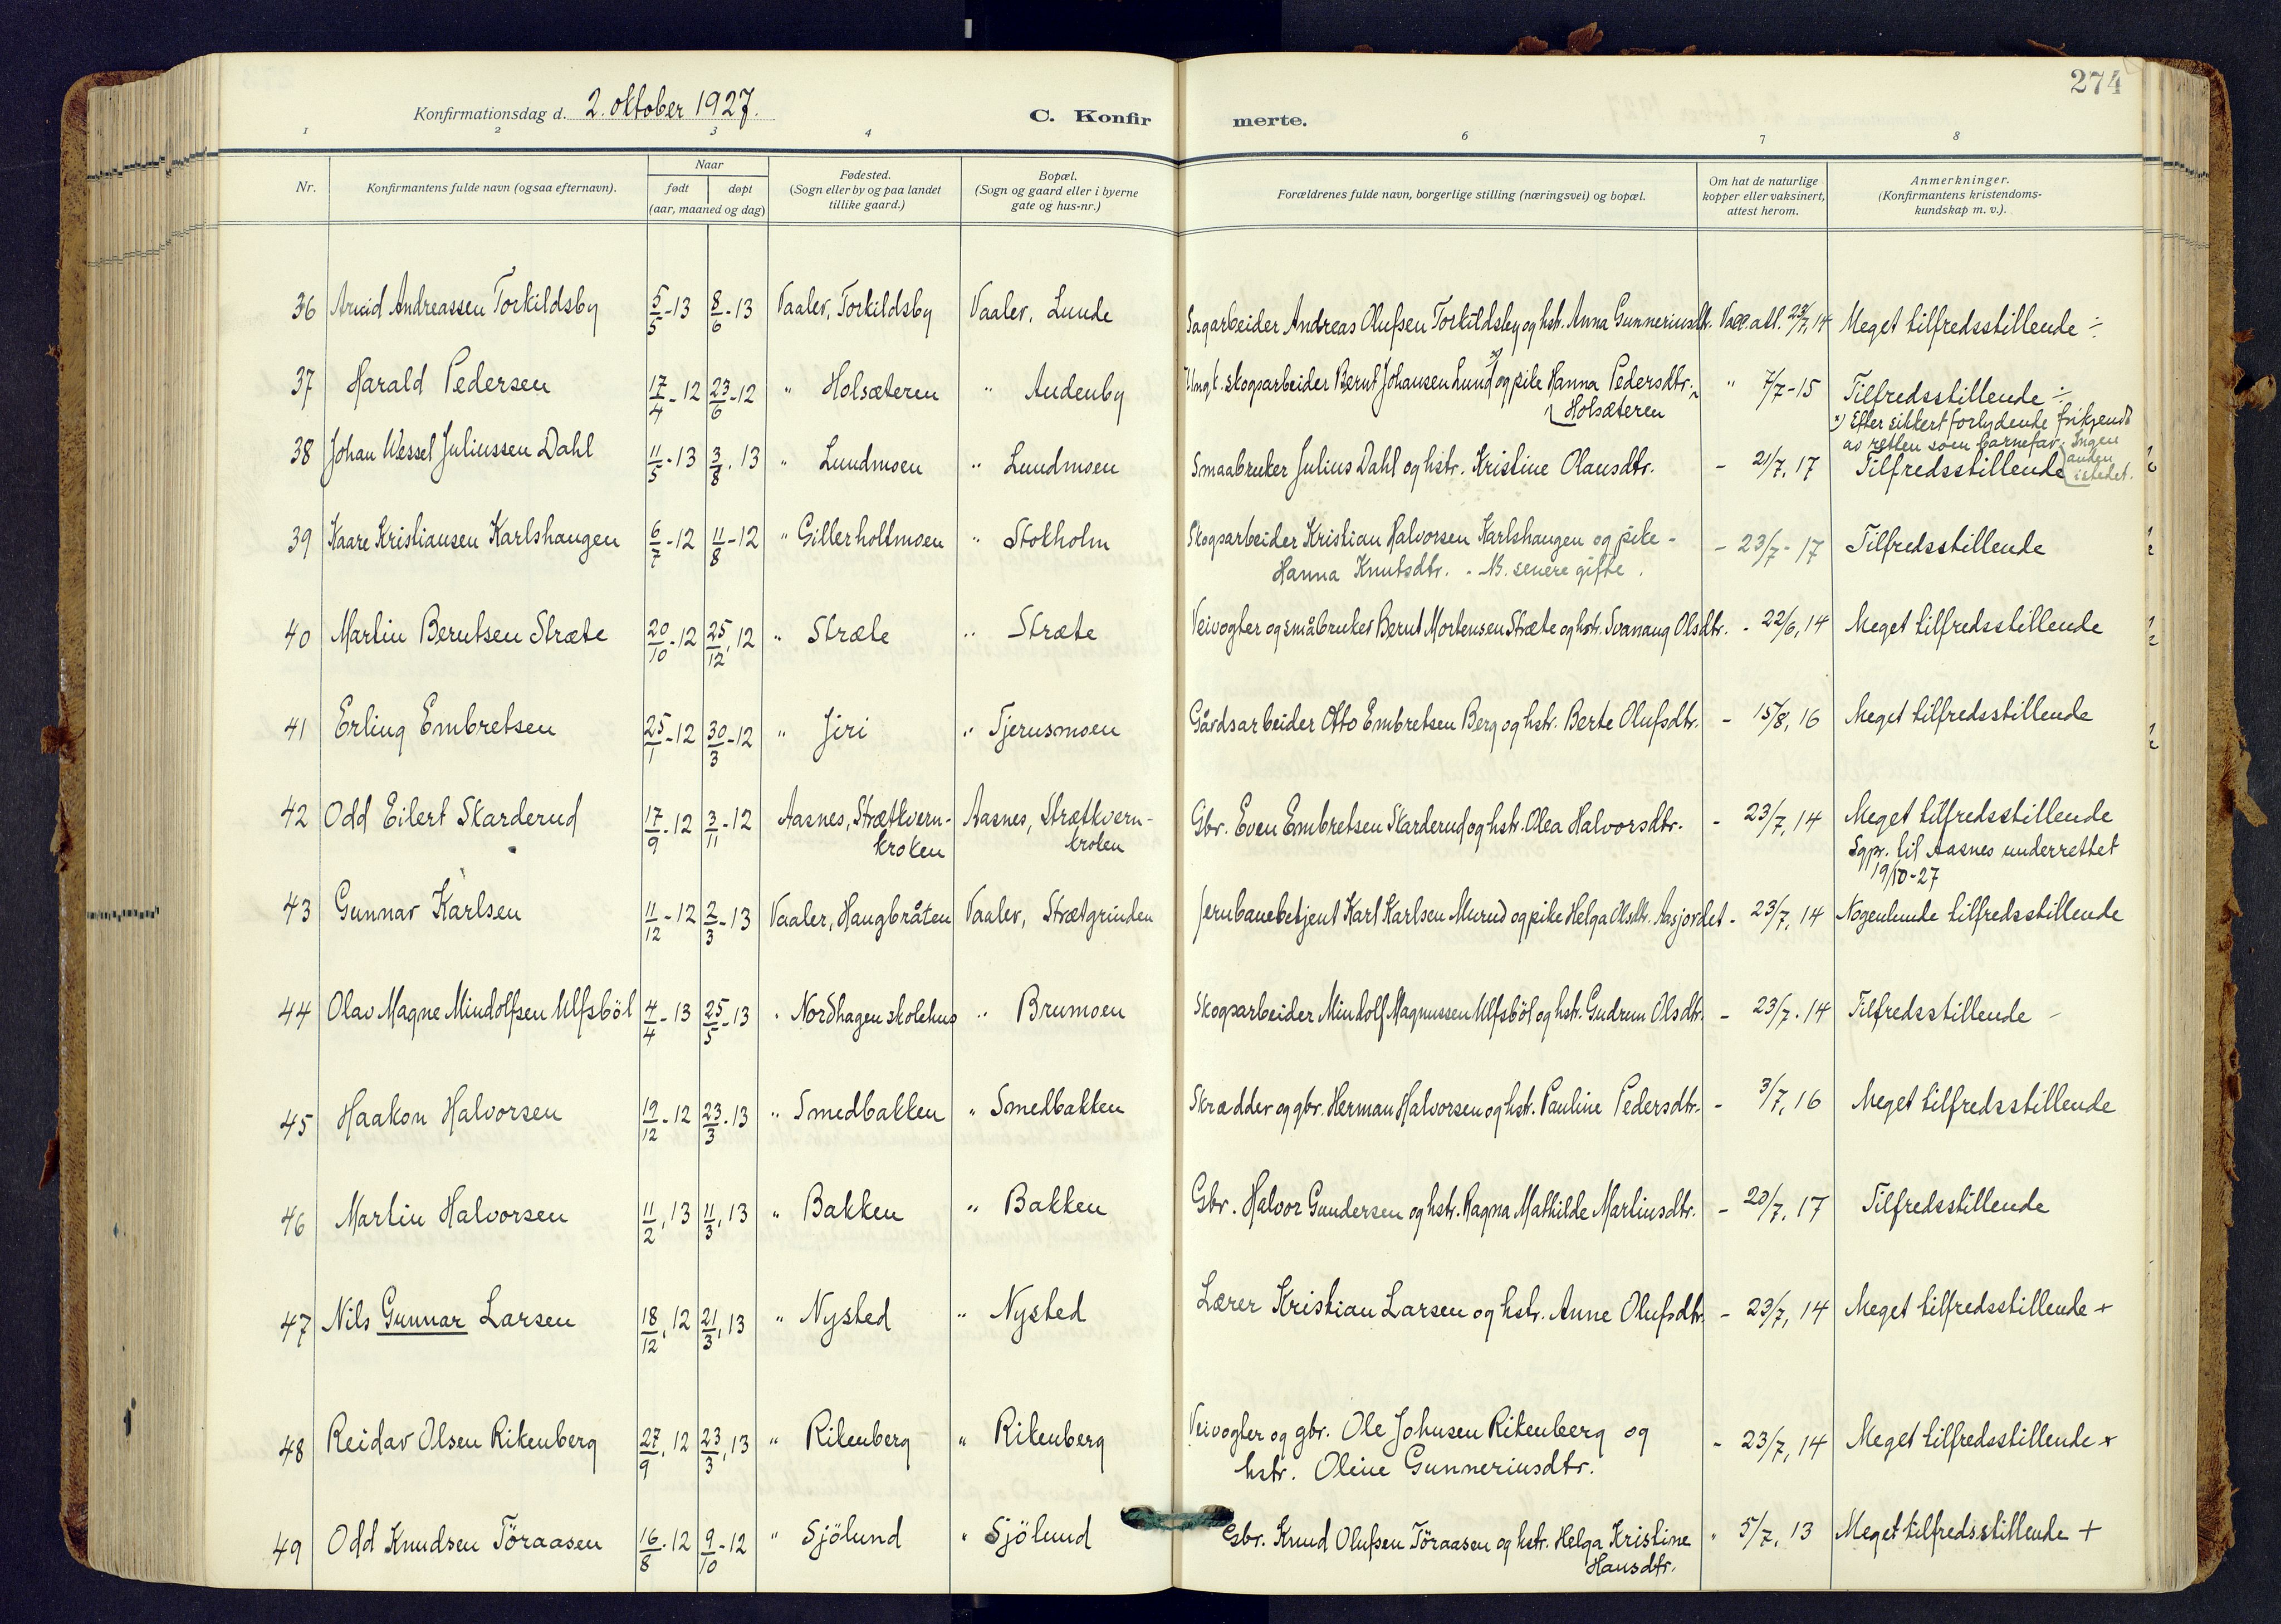 274
Konfirmationsdag d. 2. oktober 1927.
C. Konfirmerte.
1 2 3 4 6 7 8
Nr.
Konfirmantens fulde navn (ogsaa efternavn).
Naar
født døpt
(aar, maaned og dag)
Fødested.
(Sogn eller by og paa landet
tillike gaard.)
Bopæl.
(Sogn og gaard eller i byerne
gate og hus-nr.)
Forældrenes fulde navn, borgerlige stilling (næringsvei) og bopæl.
Om hat de naturlige
kopper eller vaksinert,
attest herom.
Anmerkninger.
(Konfirmantens kristendoms-
kundskap m. v.).
36 Arvid Andreassen Torkildsby 5/5-13 8/6-13 Vaaler, Torkildsby Vaaler, Lunde Sagarbeider Andreas Olufsen Torkildsby og hstr. Anna Gunneriusdtr. Vacc.att. 23/7, 14 Meget tilfredsstillende ÷
37 Harald Pedersen 17/4-12 23/6-12 " Holsæteren " Audenby Ungk. skogsarbeider Bernt Johansen Lund x) og pike Hanna Pedersdtr. " 7/7-15 Tilfredsstillende ÷
Holsæteren
x) Efter sikkert forlydende frikjendt
av retten som barnefar. Ingen
anden
istedet.
38 Johan Wessel Juliussen Dahl 11/5-13 3/8, 13 " Lundmoen " Lundmoen Smaabruker Julius Dahl og hstr. Kristine Olausdtr. - 21/7, 17 Tilfredsstillende
39 Kaare Kristiansen Karlshaugen 6/7-12 11/8-12 " Gillerholtmoen " Stokholm Skogsarbeider Kristian Halvorsen Karlshaugen og pike - - 23/7-17 Tilfredsstillende
Hanna Knutsdtr. - NB. senere gifte.
40 Martin Berntsen Stræte 20/10-12 25/12, 12 " Stræte " Stræte Veivogter og småbruker Bernt Mortensen Stræte og hstr. Svanaug Olsdtr. - 22/6, 14 Meget tilfredsstillende
41 Erling Embretsen 25/1-12 30/3-12 " Jiri " Tjernsmoen Gårdsarbeider Otto Embretsen Berg og hstr. Berte Olufsdtr. - 15/8, 16 Meget tilfredsstillende
42 Odd Eilert Skarderud 17/9-12 3/11-12 Aasnes, Strætkvern- Aasnes, Strætkvern- Gbr. Even Embretsen Skarderud og hstr. Olea Halvorsdtr. - 23/7, 14 Meget tilfredsstillende
kroken kroken Sgpr. til Aasnes underrettet
19/10-27
43 Gunnar Karlsen 11/12-12 2/3-13 Vaaler, Haugbråten Vaaler, Strætgrinden Jernbanebetjent Karl Karlsen Murud og pike Helga Olsdtr. Aasjordet - 23/7, 14 Nogenlunde tilfredsstillende
44 Olav Magne Mindolfsen Ulfsböl 4/4-13 25/5-13 " Nordhagen skolehus " Brumoen Skogsarbeider Mindolf Magnussen Ulfsböl og hstr. Gudrun Olsdtr. - 23/7. 14 Tilfredsstillende -
45 Haakon Halvorsen 19/12-12 23/3-13 " Smedbakken " Smedbakken Skrædder og gbr. Herman Halvorsen og hstr. Pauline Pedersdtr. - 3/7, 16 Meget tilfredsstillende
46 Martin Halvorsen 11/2, 13 11/3, 13 " Bakken " Bakken Gbr. Halvor Gundersen og hstr. Ragna Mathilde Martinsdtr. - 20/7, 17 Tilfredsstillende
47 Nils Gunnar Larsen 18/12, 12 21/3, 13 " Nysted " Nysted Lærer Kristian Larsen og hstr. Anne Olufsdtr. - 23/7, 14 Meget tilfredsstillende +
48 Reidar Olsen Rikenberg 27/9, 12 23/3, 13 " Rikenberg " Rikenberg Veivogter og gbr. Ole Johnsen Rikenberg og - 23/7, 14 Meget tilfredsstillende +
hstr. Oline Gunneriusdtr.
49 Odd Knudsen Töraasen 16/8-12 9/10-12 " Sjölund " Sjölund Gbr. Knud Olufsen Töraasen og hstr. Helga Kristine " 5/7, 13 Meget tilfredsstillende +
Hansdtr.